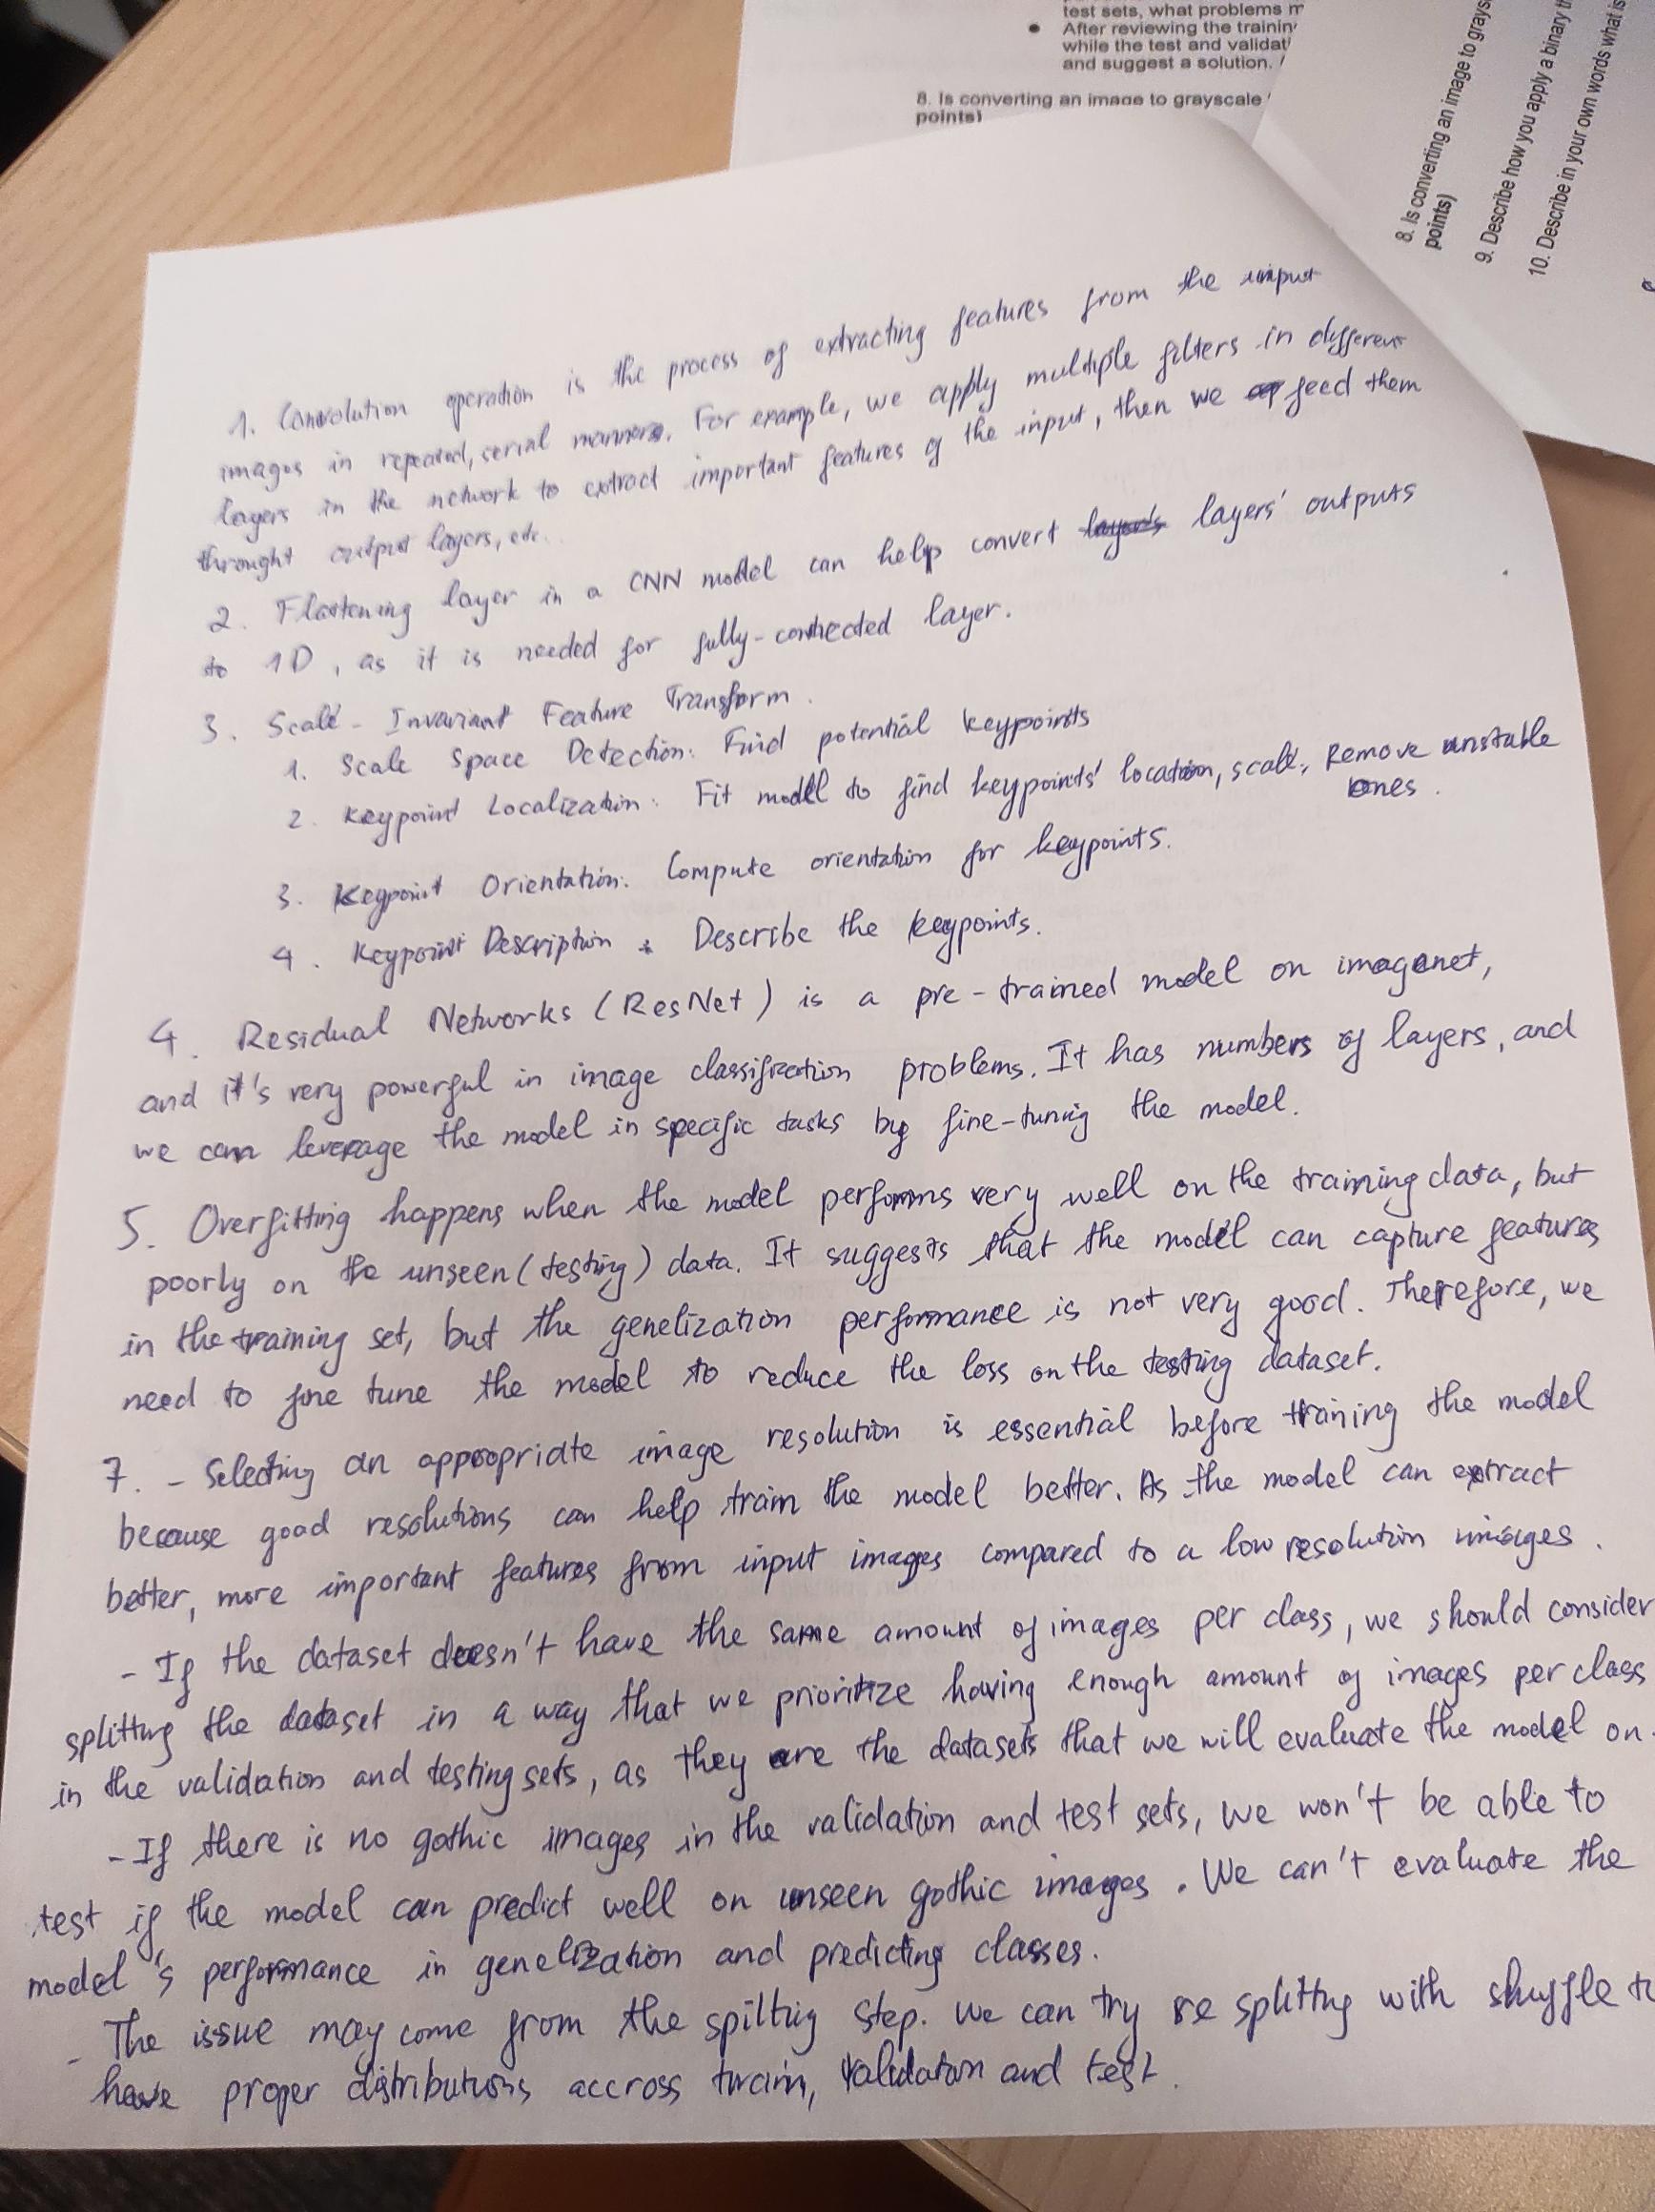 test sets, what problems m
• After reviewing the trainin
while the test and validat
and suggest a solution.
8. Is converting an image to grayscale
points)
8. Is converting an image to grays
points)
9. Describe how you apply a binary th
10. Describe in your own words what is
1. Convolution operation is the process of extracting features from the input
images in repeated, serial manners. For example, we apply multiple filters in different
layers in the network to extract important features of the input, then we feed them
throught output layers, etc.
2. Flattening layer in a CNN model can help convert layers' outputs
to 1D, as it is needed for fully-connected layer.
3. Scale-Invariant Feature Transform.
1. Scale Space Detection: Find potential keypoints
2. Keypoint Localization: Fit model to find keypoints' location, scale, Remove unstable
ones.
3. Keypoint Orientation: Compute orientation for keypoints.
4. Keypoint Description: Describe the keypoints.
4. Residual Networks (ResNet) is a pre-trained model on imagenet,
and it's very powerful in image classification problems. It has numbers of layers, and
we can leverage the model in specific tasks by fine-tuning the model.
5. Overfitting happens when the model performs very well on the training data, but
poorly on the unseen (testing) data. It suggests that the model can capture features
in the training set, but the genelization performance is not very good. Therefore, we
need to fine tune the model to reduce the loss on the testing dataset.
7. - Selecting an appropriate image resolution is essential before training the model
because good resolutions can help train the model better. As the model can extract
better, more important features from input images compared to a low resolution images.
- If the dataset doesn't have the same amount of images per class, we should consider
splitting the dataset in a way that we prioritize having enough amount of images per class
in the validation and testing sets, as they are the datasets that we will evaluate the model on.
- If there is no gothic images in the validation and test sets, we won't be able to
test if the model can predict well on unseen gothic images. We can't evaluate the
model's performance in genelization and predicting classes.
- The issue may come from the spilting step. We can try re splitting with shuffle to
have proper distributions accross train, validation and test.